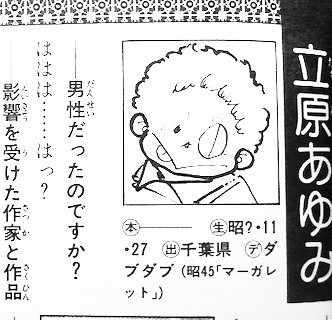 立原あゆみ
㊍―― ㊓昭?・11
・27 ㊌千葉県 ㋣ダ
ブダブ(昭45「マーガレ
ット」)
――男性だったのですか?
はは……はっ?
――影響を受けた作家と作品